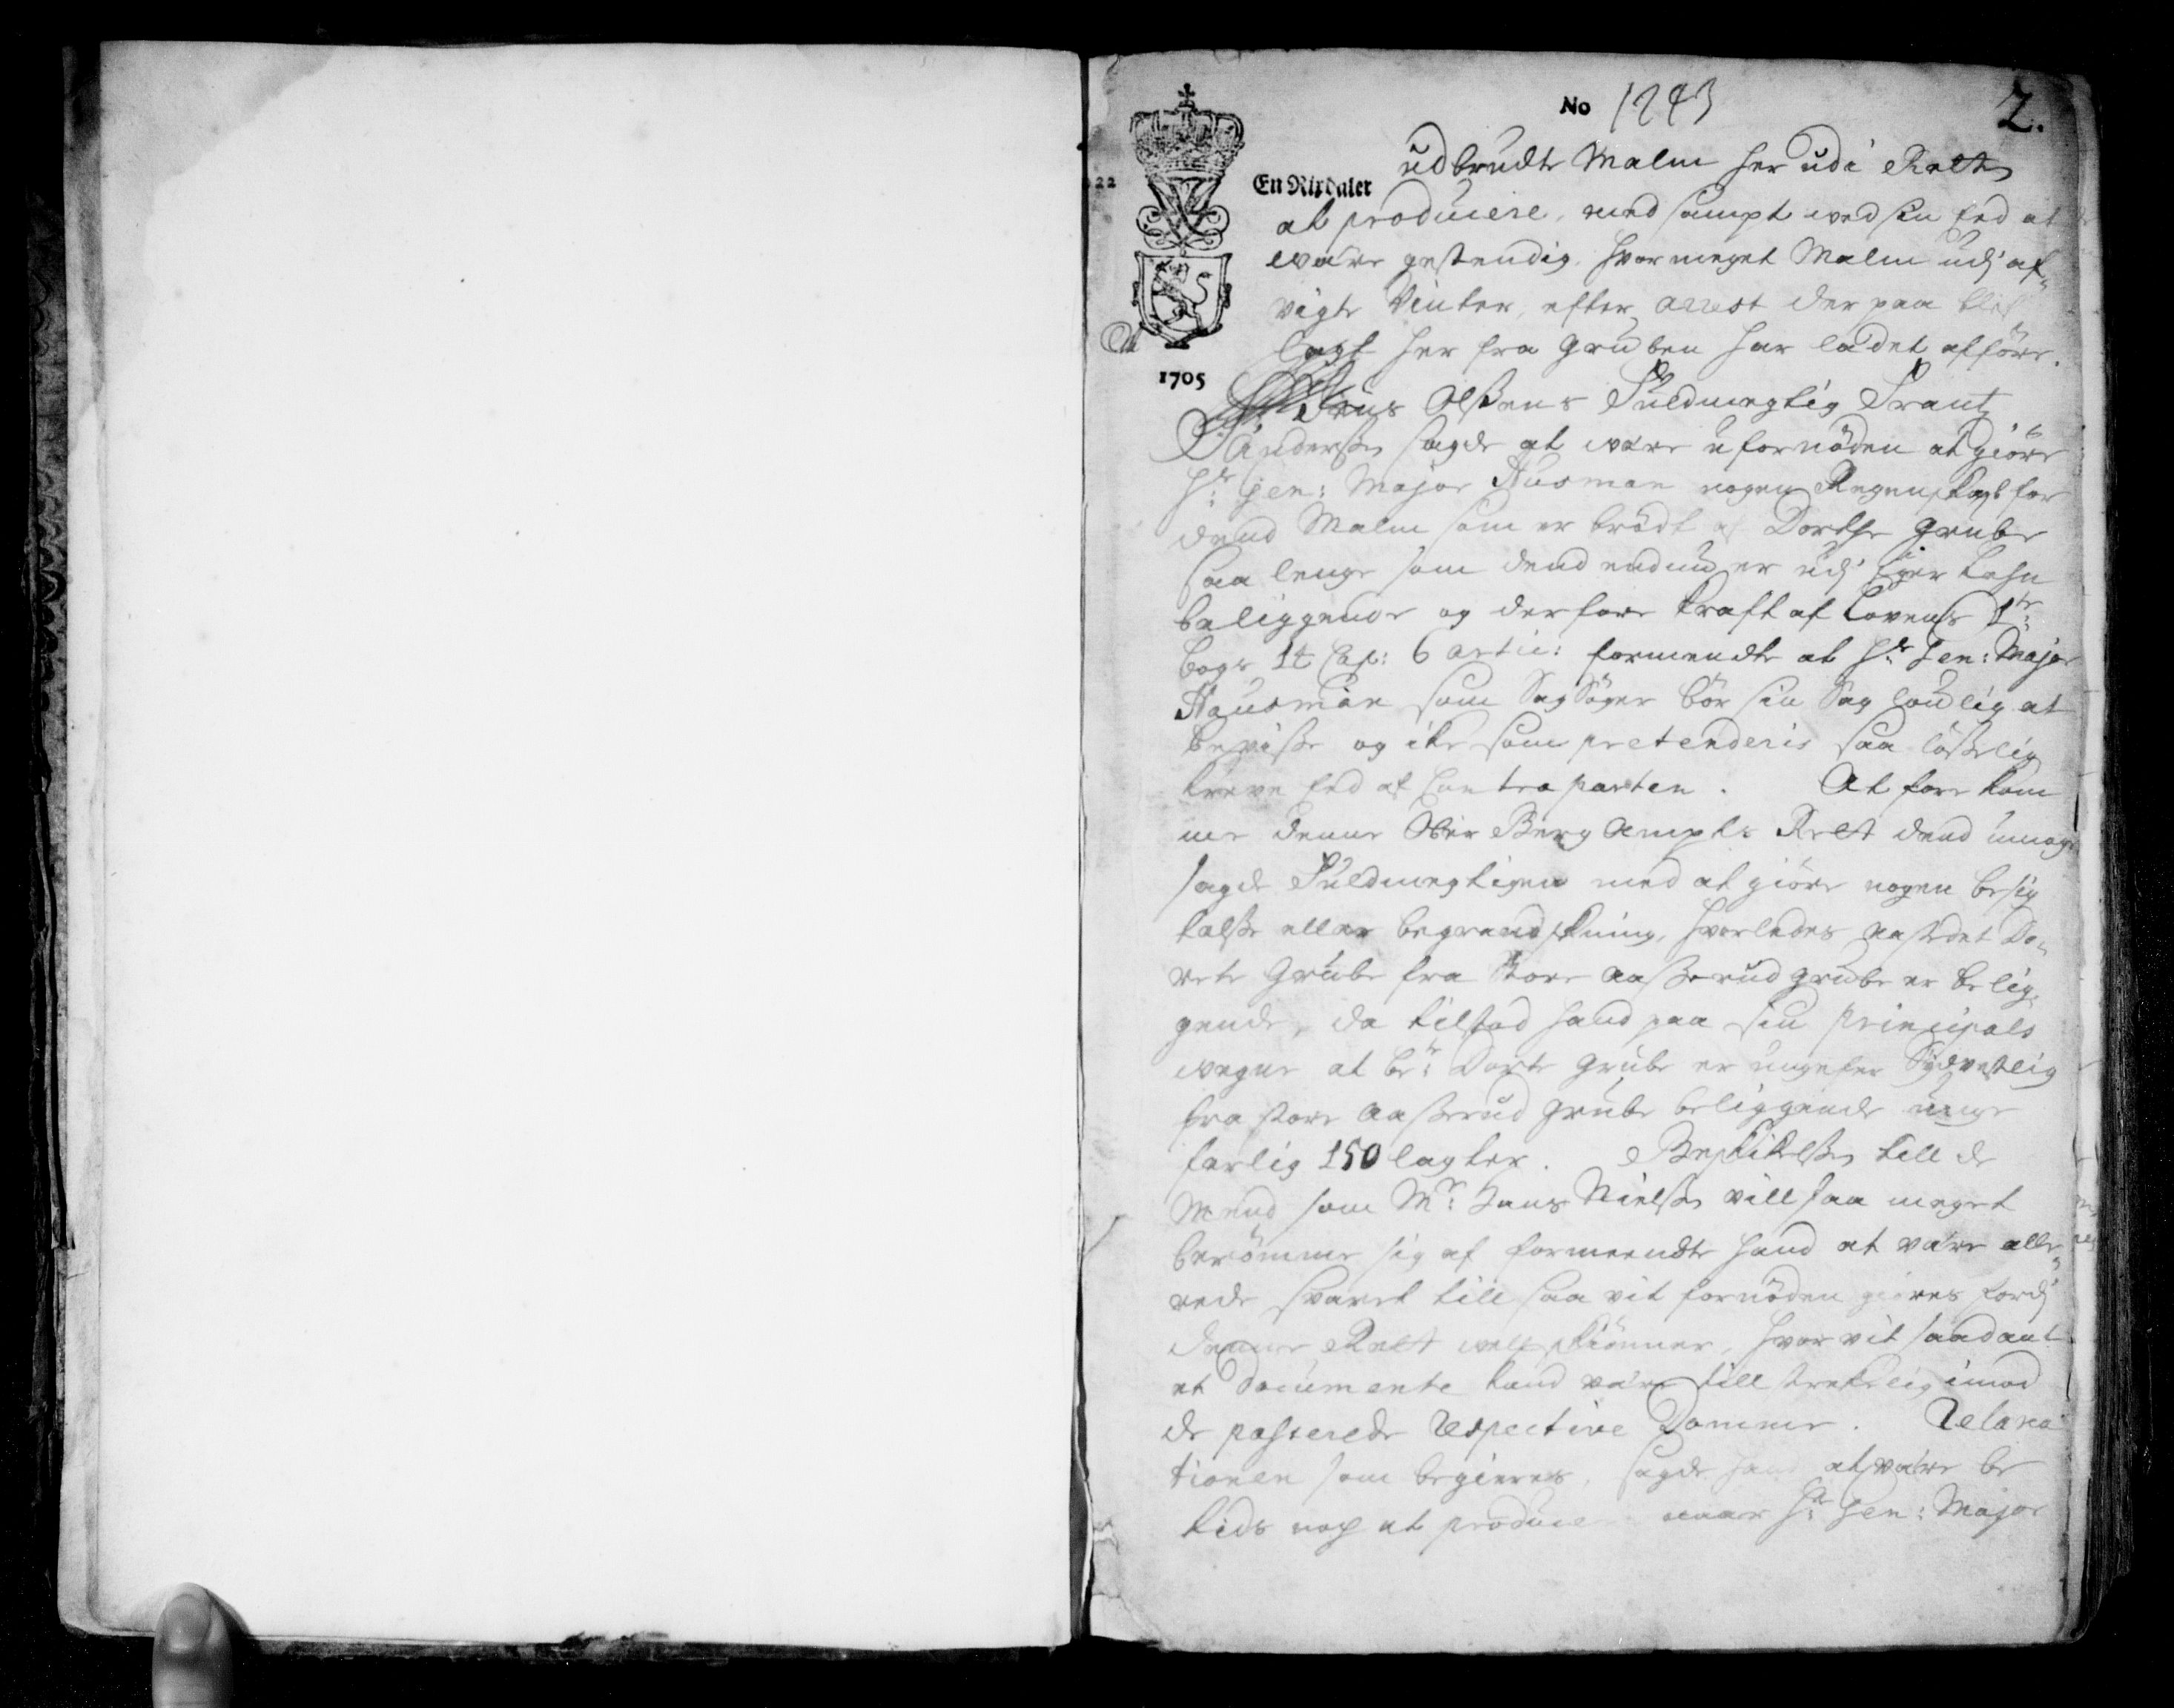 No 1243
2.
22
En Rixdaler
1705
udbrudte Malm her udi Retten
at producere, med sampt ved sin Eed at
være gestendig, hvor meget Malm udj af„
vigte Vinter, efter arrest der paa blef
lagt her fra Gruben har ladet afføre.
Jens Olsens Fuldmegtig Frantz
Andersen sagde at være ufornöden at giöre
Hr: Gen: Major Husman nogen Regenskap for
dend Malm som er brödt af Dorthe Grube
saa lenge som dend endnu er udj Eger Lehn
beliggende og derfore kraft af Lovens 1te
bogs 14 Cap: 6 artic: formeente at Hr Gen: Major
Hausman som SagSöger bör sin Sag lovlig at
bevisse og ike som pretenderis saa löselig
kreve Eed af Contraparten. At forekom
me denne Ober Berg Ampts Rett dend umag
sagde Fuldmegtigen med at giöre nogen besig
telse eller begrandskning, hvorledes aastedet Do„
rete Grube fra Store Aasserud grube er belig„
gende, da tilstod hand paa sin principals
vegne at be:te Dorte Grube er ungefer Sydvestlig
fra store Aasserud Grube beliggende unge
ferlig 150 lagter. Beskikelsen till de
Mend som Mr: Hans Nielsen vill saa meget
berömme sig af formeente hand at være alle„
rede svaret till saa vit fornöden giöres fordj
denne Rett well skiönner, hvor vit saadant
et Documente kand være till trekelig imod
de passerede respective Domme. Relaxa
tionen som begieres, sagde hand at være be
tids nog at producere naar Hr: Gen: Major